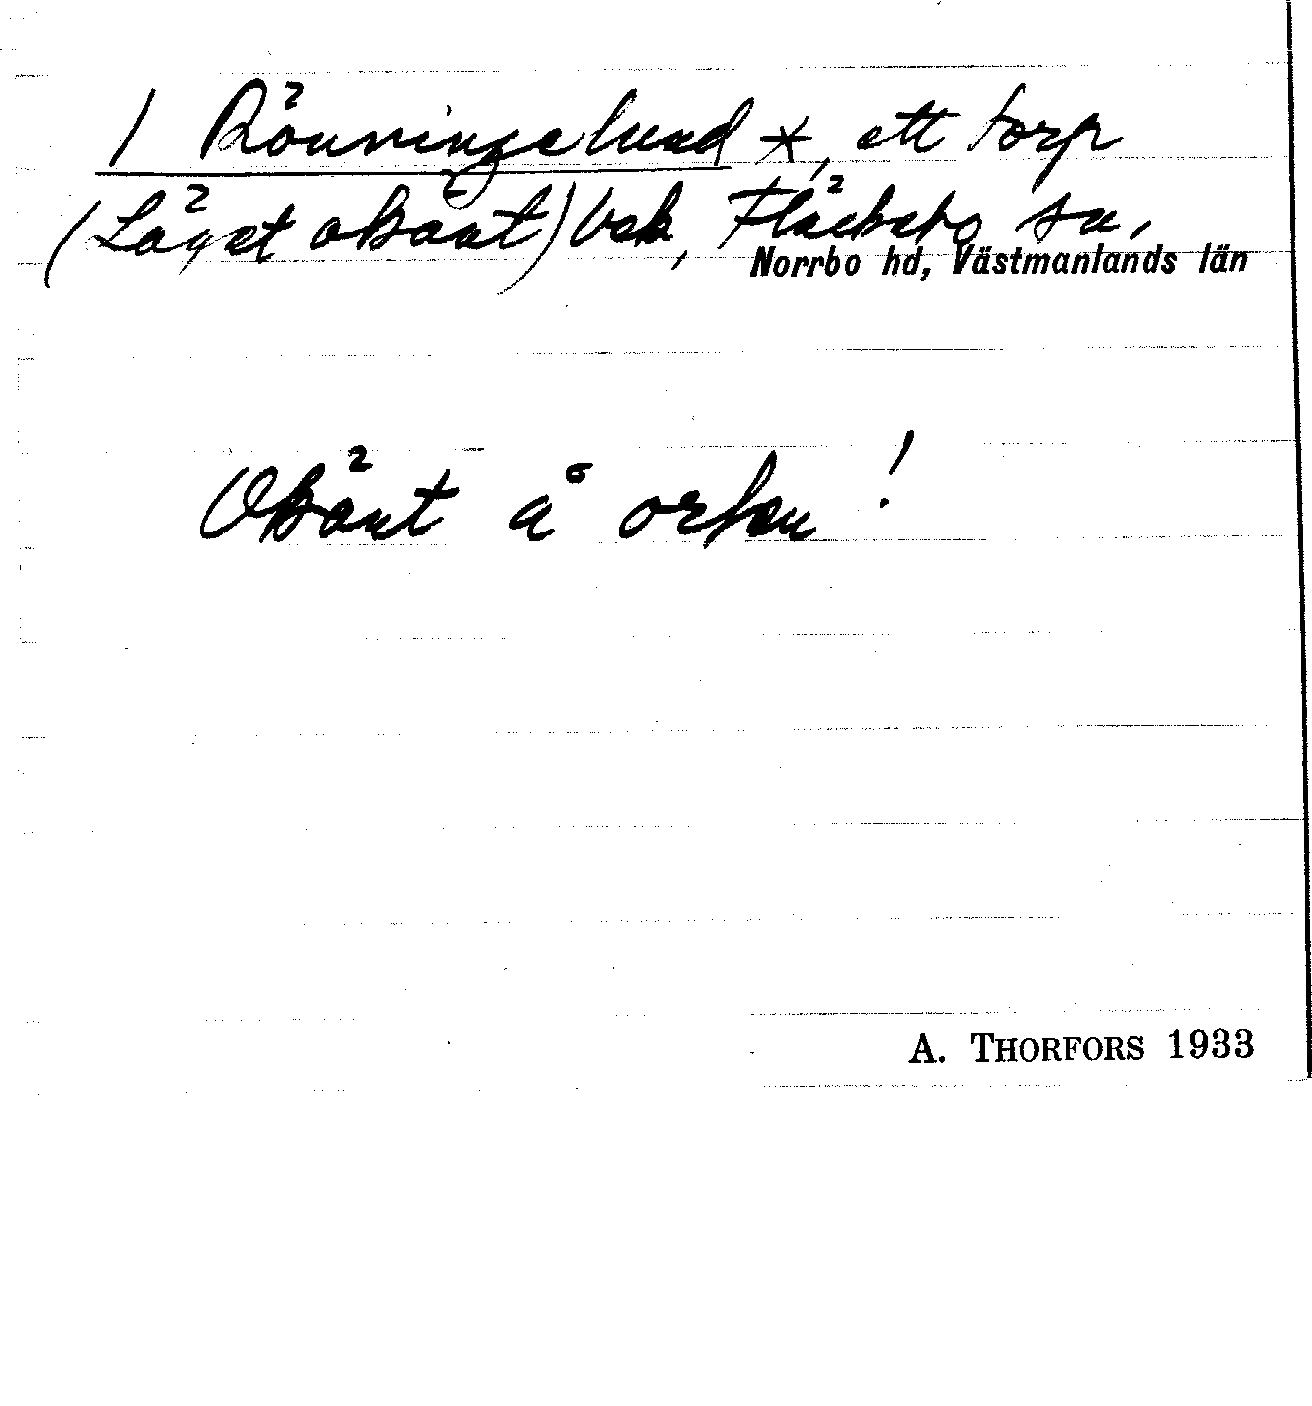 1 Rönningelund *, ett torp
(Läget okänt) Vak, Fläckebo sn,
Norrbo hd, Västmanlands län
Okänt å orten!
A. THORFORS 1933